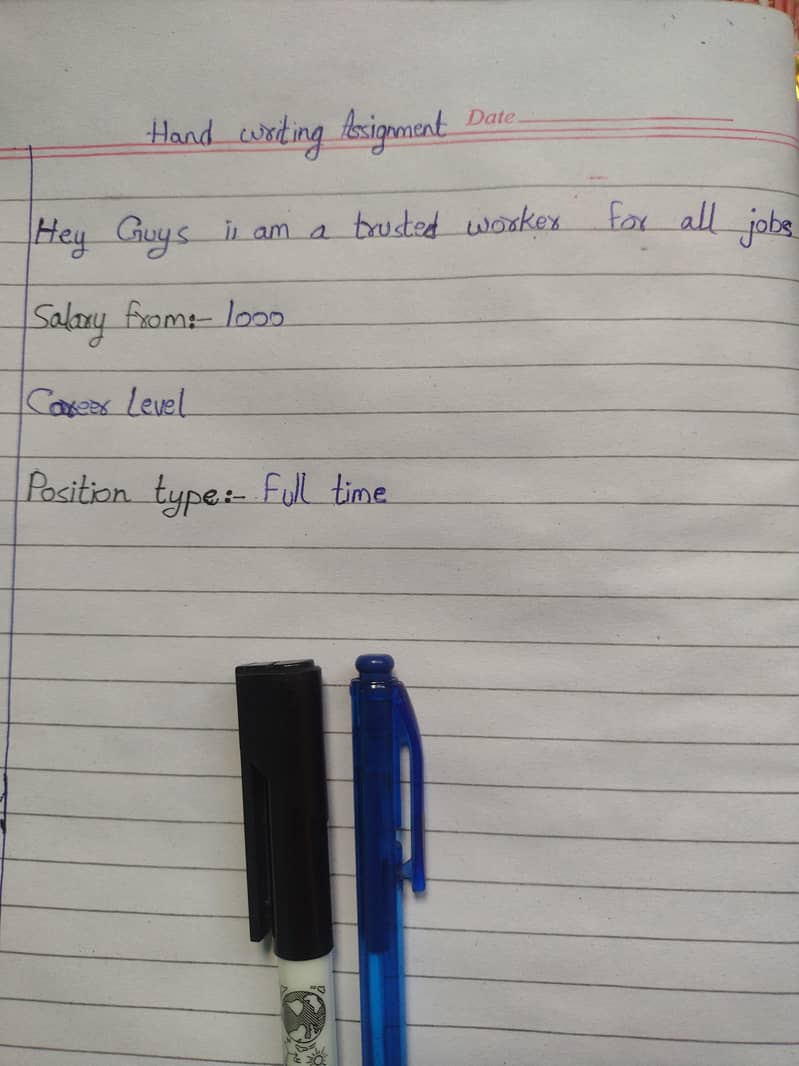 Hand writing Assignment Date
Hey Guys is am a trusted worker for all jobs
Salary from:- 1000
Career Level
Position type:- Full time